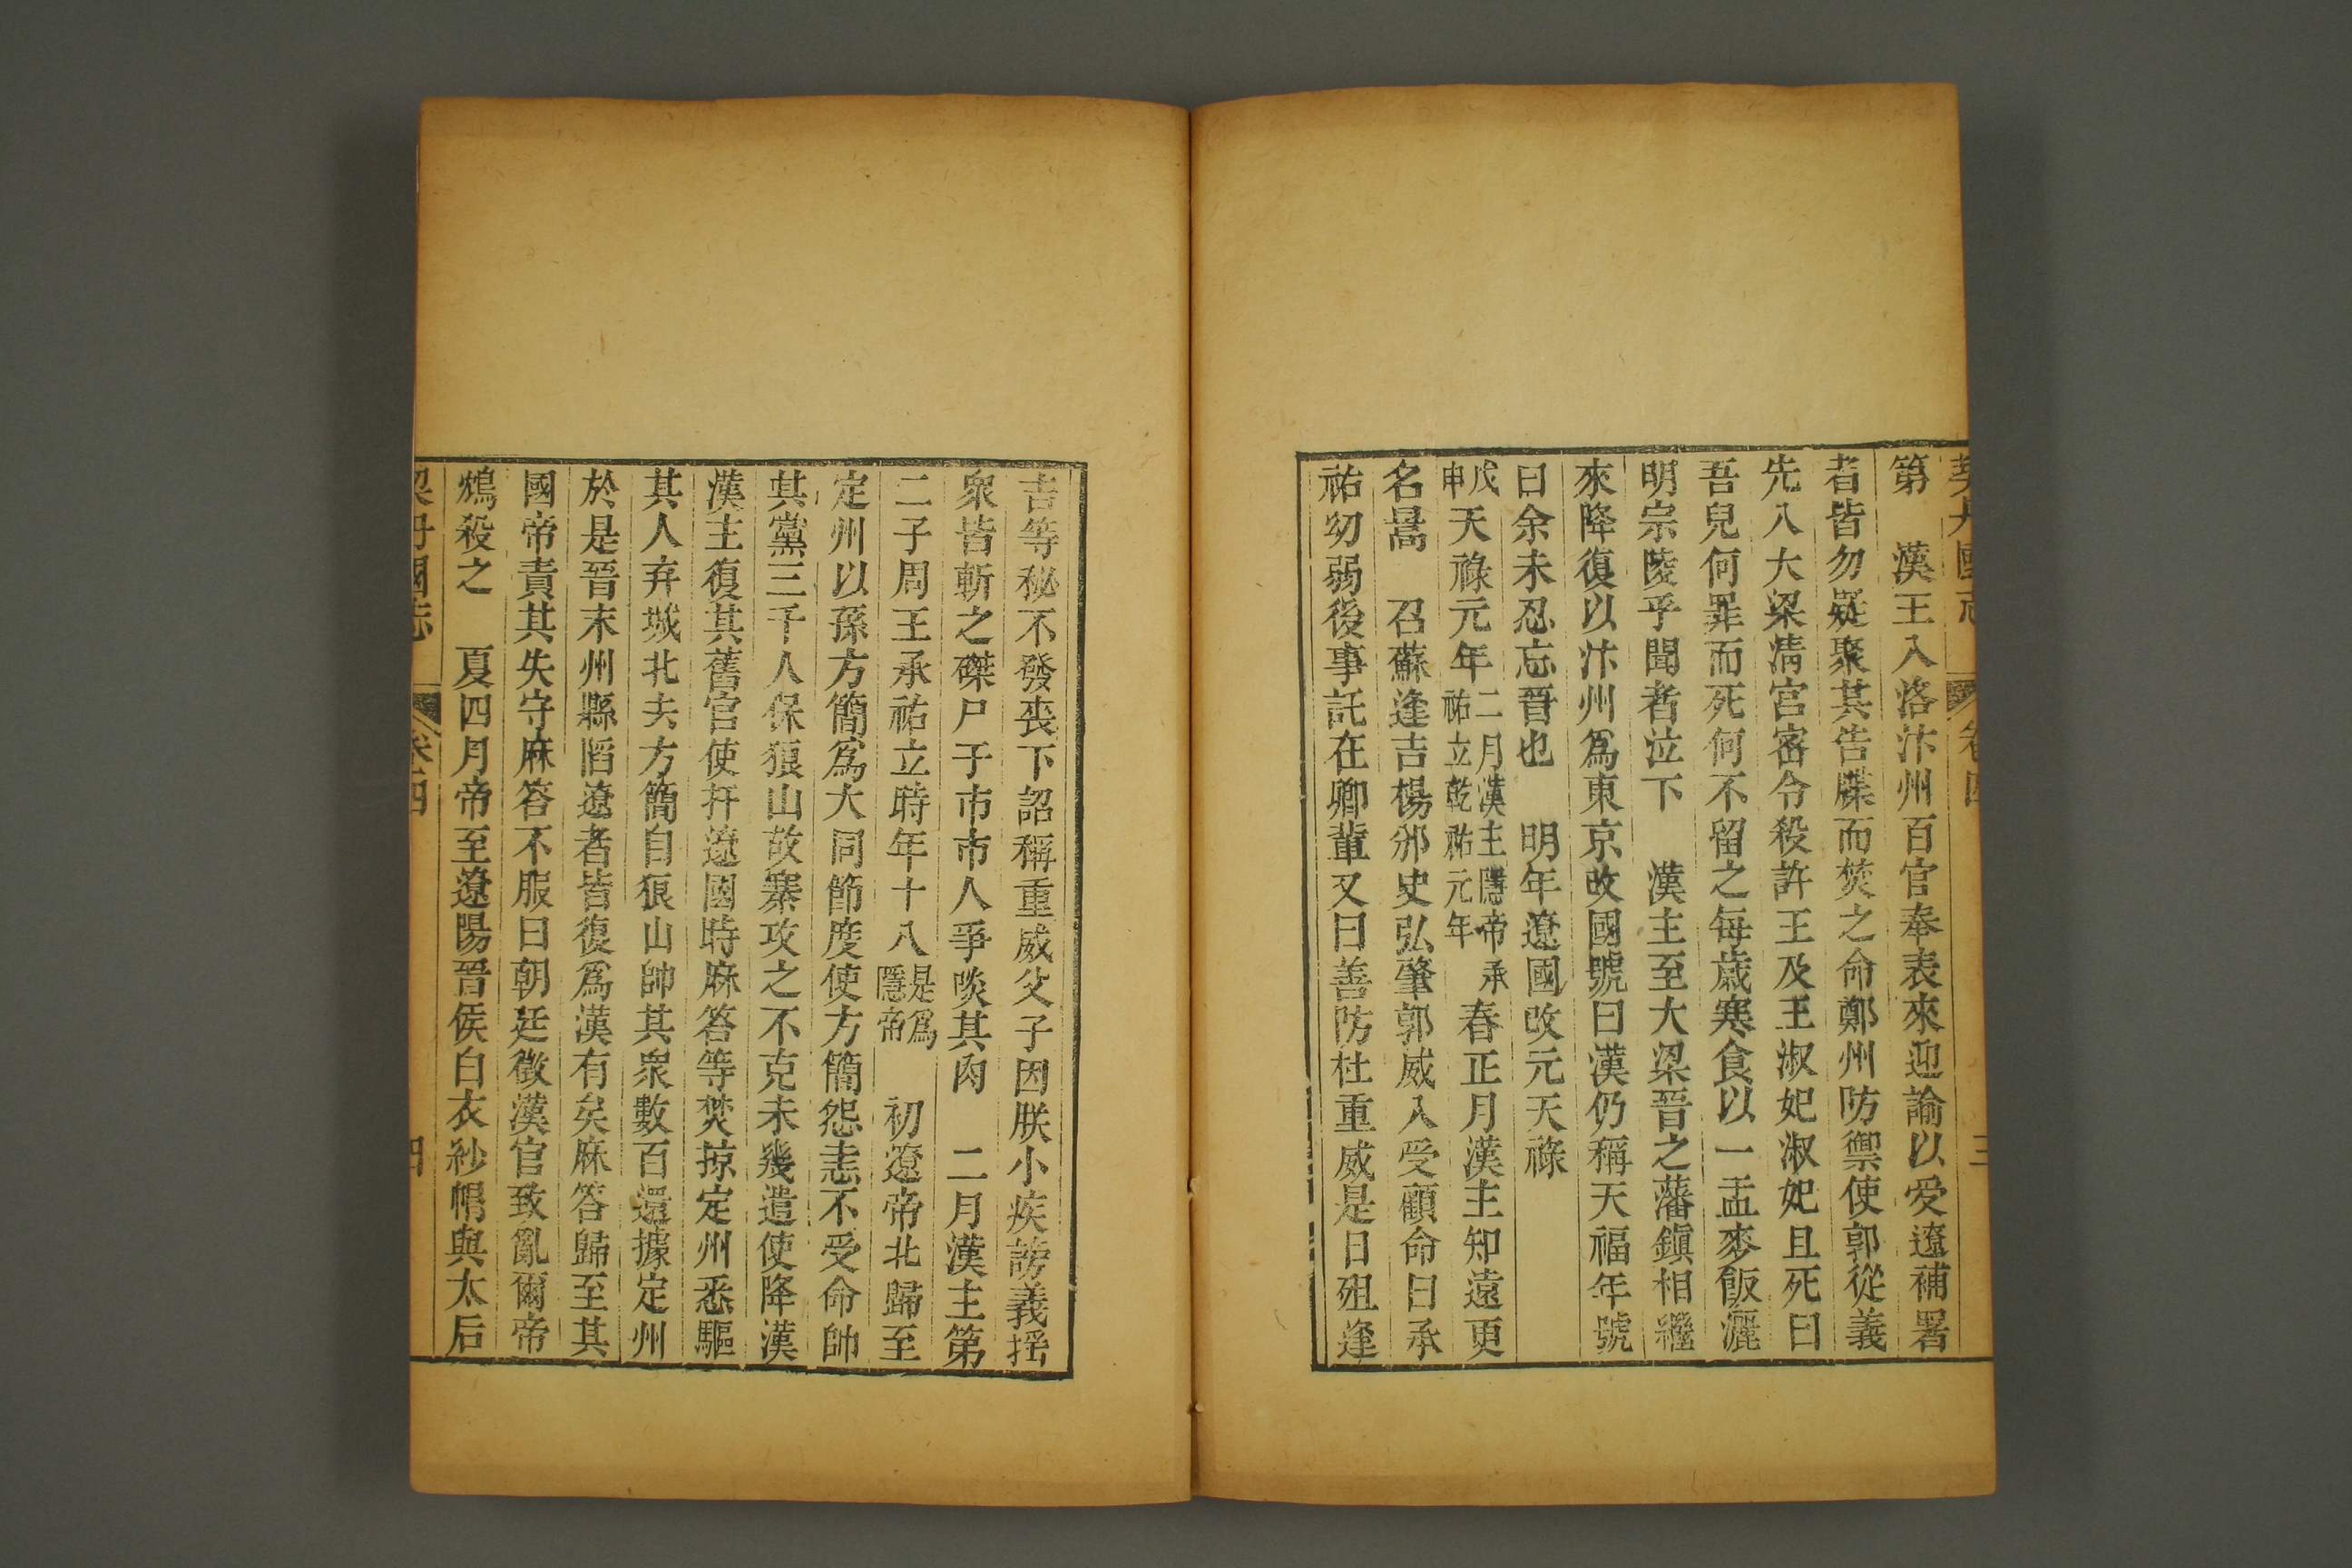 契丹國志 卷四 三
第 漢王入洛汴州百官奉表來迎諭以愛遼補署
者皆勿疑聚其告牒而焚之命鄭州防禦使郭從義
先入大梁淸宮密令殺許王及王淑妃淑妃且死曰
吾兒何罪而死何不留之每歲寒食以一盂麥飯灑
明宗陵乎聞者泣下 漢主至大梁晉之藩鎭相繼
來降復以汴州爲東京改國號曰漢仍稱天福年號
曰余未忍忘晉也 明年遼國改元天祿
戊申天祿元年二月漢主隱帝承祐立乾祐元年春正月漢主知遠更
名暠 召蘇逢吉楊邠史弘肇郭威入受顧命曰承
祐幼弱後事託在卿輩又曰善防杜重威是日殂逢
吉等秘不發喪下詔稱重威父子因朕小疾謗議揺
衆皆斬之磔尸于市市人爭啖其肉 二月漢主第
二子周王承祐立時年十八是爲隱帝 初遼帝北歸至
定州以孫方簡爲大同節度使方簡怨恚不受命帥
其黨三千人保狼山故寨攻之不克未幾遣使降漢
漢主復其舊官使扞遼國時麻答等焚掠定州悉驅
其人弃城北去方簡自狼山帥其衆數百還據定州
於是晉末州縣䧟遼者皆復爲漢有矣麻答歸至其
國帝責其失守麻答不服曰朝廷徵漢官致亂爾帝
鴆殺之 夏四月帝至遼陽晉侯白衣紗帽與太后
契丹國志 卷四 四